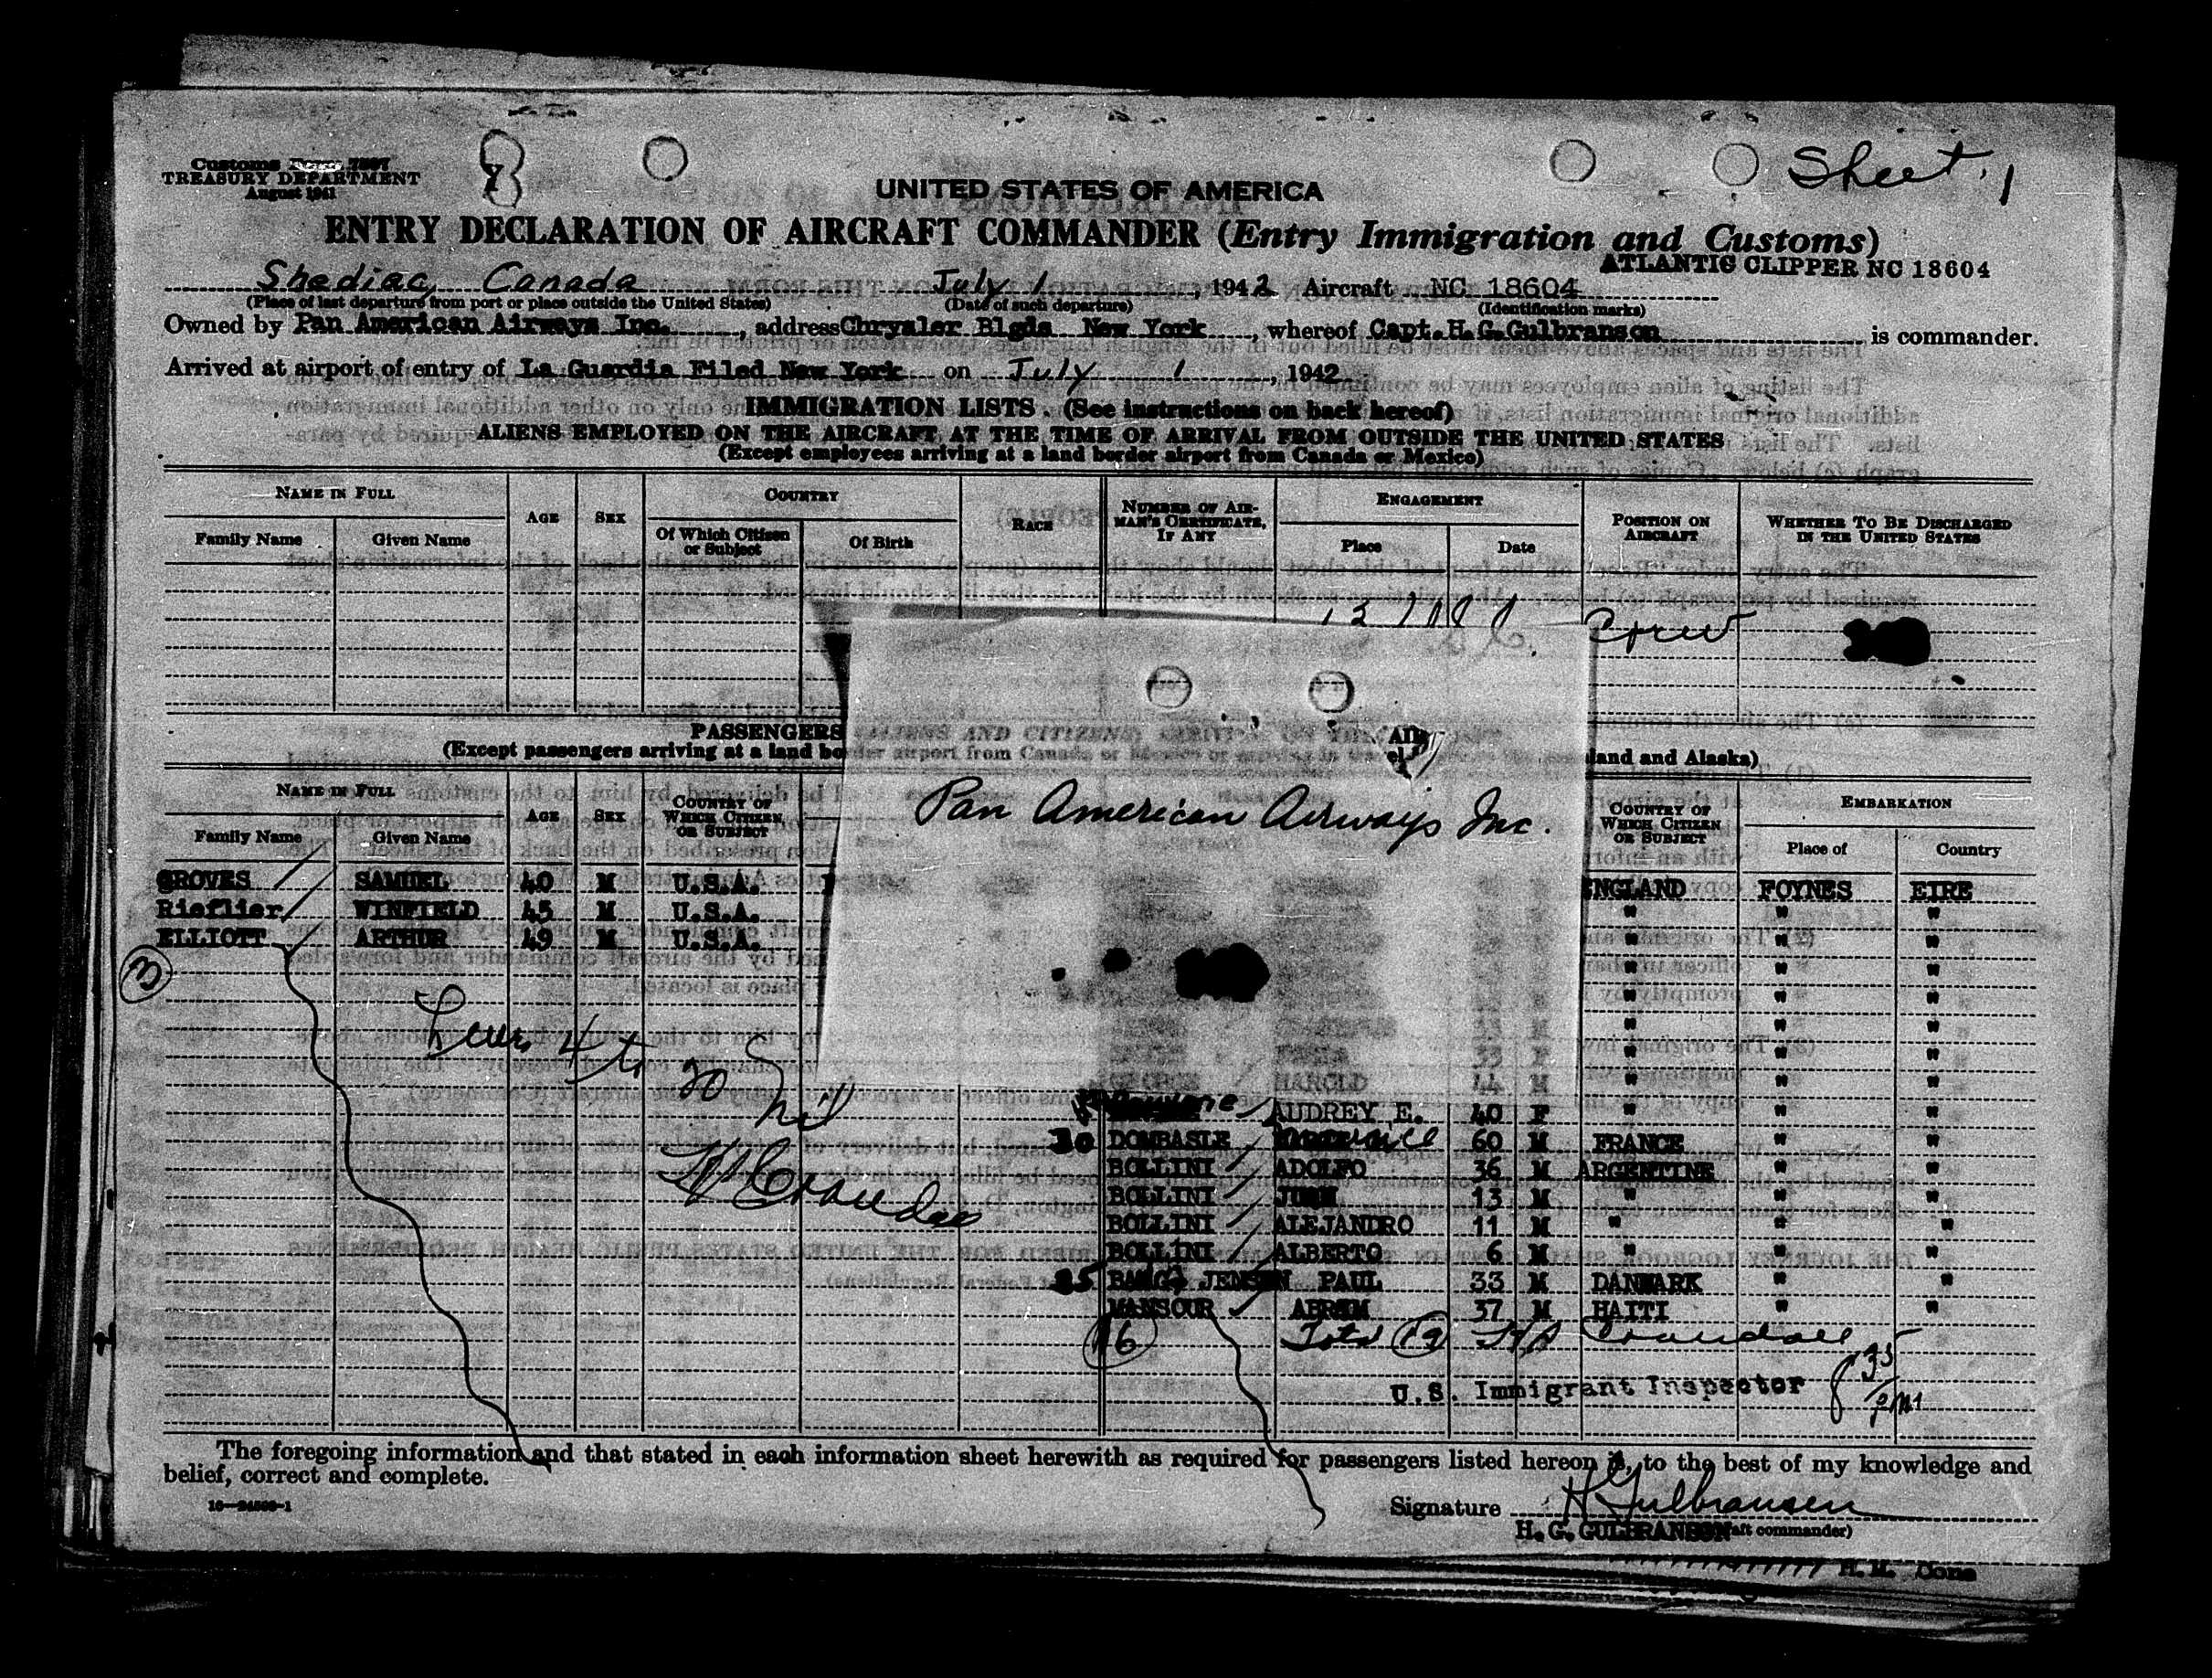 Sheet 1
Customs Form 7507
TREASURY DEPARTMENT
August 1941
UNITED STATES OF AMERICA
ENTRY DECLARATION OF AIRCRAFT COMMANDER (Entry Immigration and Customs)
ATLANTIC CLIPPER NC 18604
Shediac, Canada July 1, 1942 Aircraft NC 18604
(Place of last departure from port or place outside the United States) (Date of such departure) (Identification marks)
Owned by Pan American Airways Inc., address Chrysler Blgds New York, whereof Capt. H. G. Gulbranson is commander.
Arrived at airport of entry of La Guardia Filed New York on July 1, 1942
IMMIGRATION LISTS. (See instructions on back hereof)
ALIENS EMPLOYED ON THE AIRCRAFT AT THE TIME OF ARRIVAL FROM OUTSIDE THE UNITED STATES
(Except employees arriving at a land border airport from Canada or Mexico)
NAME IN FULL AGE SEX COUNTRY RACE NUMBER OF AIRMAN'S CERTIFICATE, IF ANY ENGAGEMENT POSITION ON AIRCRAFT WHETHER TO BE DISCHARGED IN THE UNITED STATES
Family Name Given Name Of Which Citizen or Subject Of Birth Place Date
Crew
PASSENGERS
(Except passengers arriving at a land bo
land and Alaska)
Pan American Airways Inc.
NAME IN FULL AGE SEX COUNTRY OF WHICH CITIZEN OR SUBJECT COUNTRY OF WHICH CITIZEN OR SUBJECT EMBARKATION
Family Name Given Name Place of Country
GROVES SAMUEL 40 M U.S.A. ENGLAND FOYNES EIRE
Rieflier WINFIELD 45 M U.S.A. " " "
ELLIOTT ARTHUR 49 M U.S.A. " " "
3
" " "
" " "
" " "
33 F " " "
GEORGE HAROLD 44 M " " "
AUDREY E. 40 F " " "
Lines 4 to 20 nil
30 DOMBASLE 60 M FRANCE " "
BOLLINI ADOLFO 36 M ARGENTINE " "
BOLLINI 13 M " " "
BOLLINI ALEJANDRO 11 M " " "
BOLLINI ALBERTO 6 M " " "
35 BANG JENSEN PAUL 33 M DANMARK " "
MANSOUR 37 M HAITI " "
16 Total 19
U.S. Immigrant Inspector 8 35 pm
The foregoing information and that stated in each information sheet herewith as required for passengers listed hereon is, to the best of my knowledge and
belief, correct and complete.
Signature H Gulbransen
H. G. GULBRANSON
aft commander)